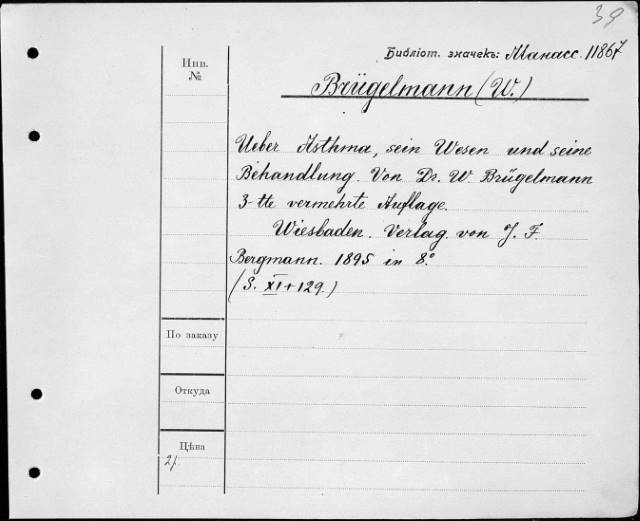 39
Библіот. значекъ: Манасс. 11867
Инв.
№
Brügelmann (W.)
Ueber Asthma, sein Wesen und seine
Behandlung. Von Dr. W. Brügelmann
3-tte vermehrte Auflage.
Wiesbaden. Verlag. von J. F.
Bergmann. 1895 in 8.º
(S. XI+129.)
По заказу
Откуда
Цѣна
2/.